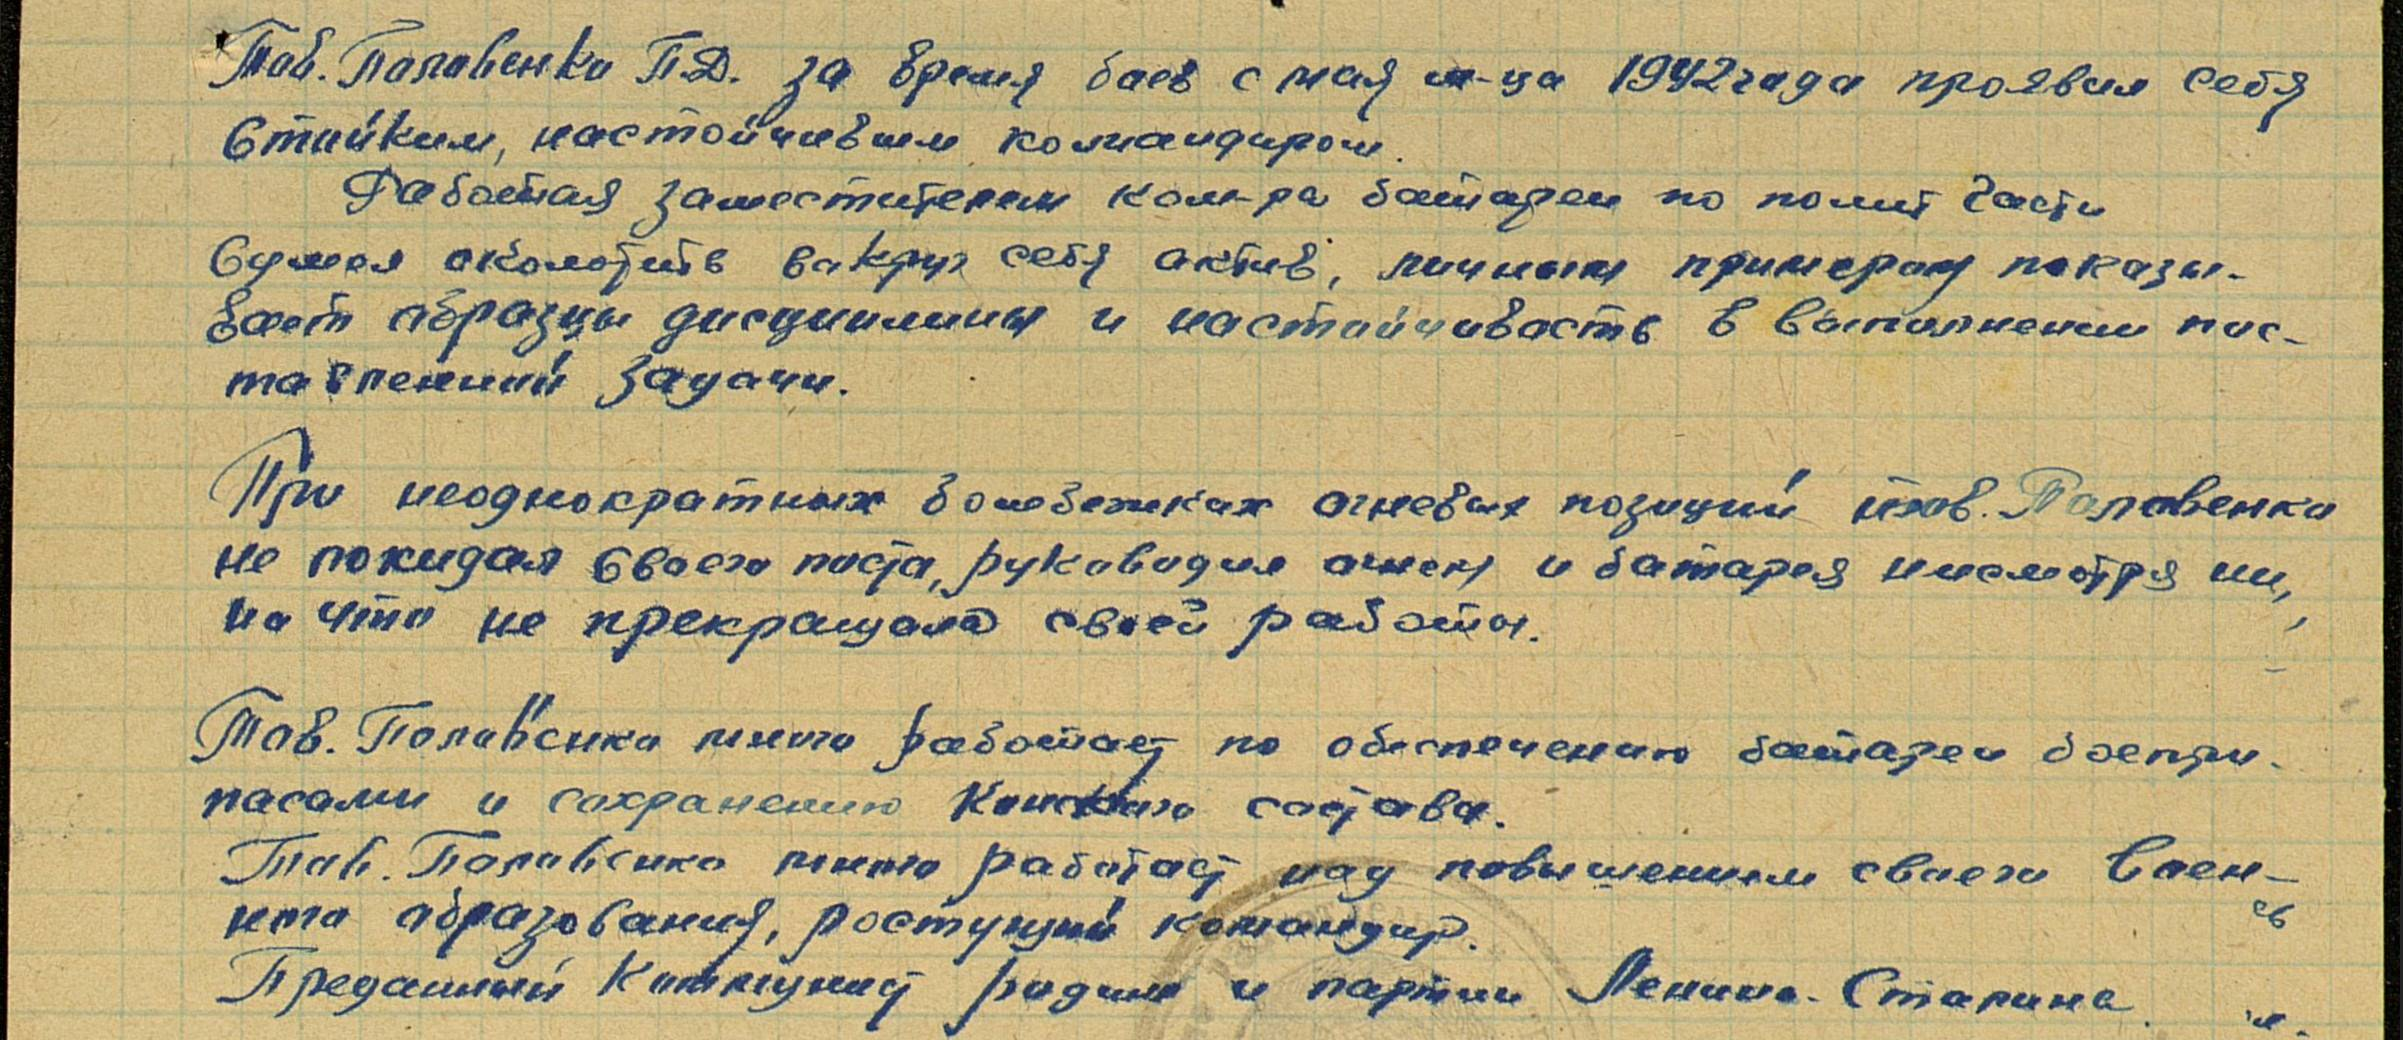 Тов. Половенко П.Д. за время боев с мая м-ца 1942 года проявил себя
стойким, настойчивым командиром.
Работая заместителем ком-ра батареи по полит части
сумел сколотить вокруг себя актив, личным примером показы-
вает образцы дисциплины и настойчивость в выполнении пос-
тавленной задачи.
При неоднократных бомбежках огневых позиций тов. Половенко
не покидал своего поста, руководил огнем и батарея несмотря ни,
на что не прекращала своей работы.
Тов. Половенко много работает по обеспечению батареи боепри-
пасами и сохранению конского состава.
Тов. Половенко много работает над повышением своего воен-
ного образования, ростущий командир.
Преданный коммунист родине и партии Ленина-Сталина.